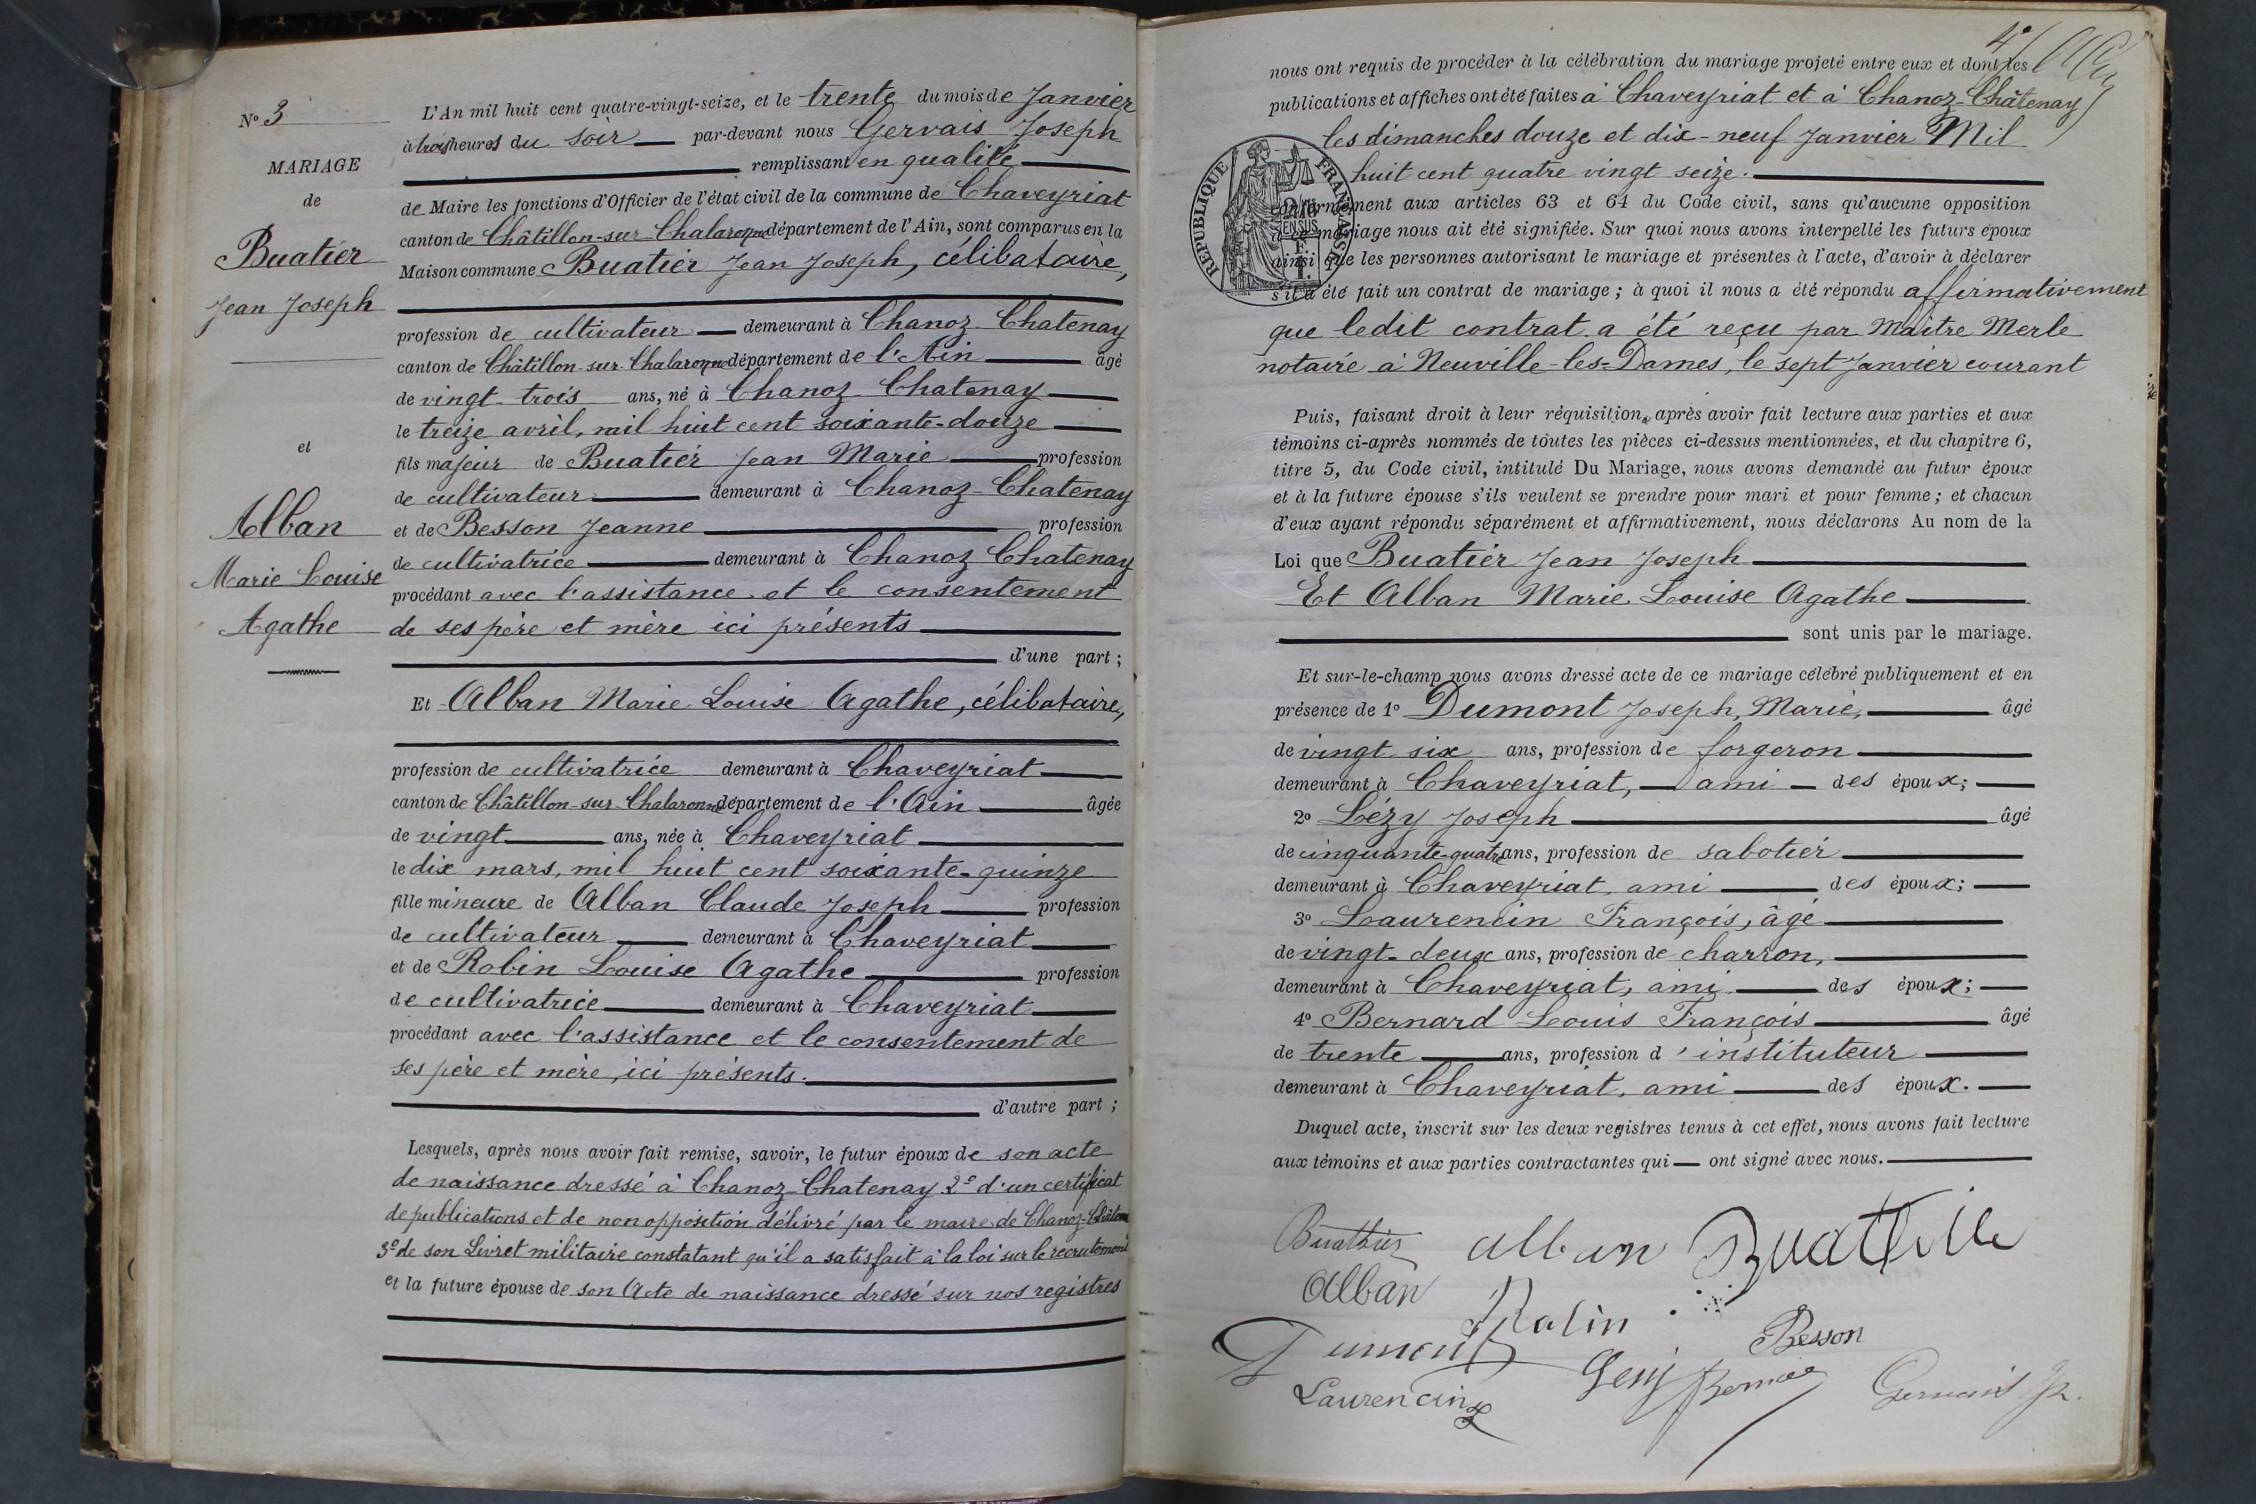 N° 3
MARIAGE
de
Buatier
Jean Joseph
et
Alban
Marie Louise
Agathe
L'An mil huit cent quatre-vingt-seize, et le trente du mois de Janvier
à trois heures du soir par-devant nous Gervais Joseph
remplissant en qualité
de Maire les fonctions d'Officier de l'état civil de la commune de Chaveyriat
canton de Châtillon-sur-Chalaronne département de l'Ain, sont comparus en la
Maison commune Buatier Jean Joseph, célibataire,
profession de cultivateur demeurant à Chanoz-Chatenay
canton de Châtillon-sur-Chalaronne département de l'Ain âgé
de vingt-trois ans, né à Chanoz Chatenay
le treize avril, mil huit cent soixante-douze
fils majeur de Buatier Jean Marie profession
de cultivateur demeurant à Chanoz-Chatenay
et de Besson Jeanne profession
de cultivatrice demeurant à Chanoz Chatenay
procédant avec l'assistance et le consentement
de ses père et mère ici présents
d'une part ;
Et Alban Marie Louise Agathe, célibataire,
profession de cultivatrice demeurant à Chaveyriat
canton de Châtillon-sur-Chalaronne département de l'Ain âgée
de vingt ans, née à Chaveyriat
le dix mars, mil huit cent soixante-quinze
fille mineure de Alban Claude Joseph profession
de cultivateur demeurant à Chaveyriat
et de Robin Louise Agathe profession
de cultivatrice demeurant à Chaveyriat
procédant avec l'assistance et le consentement de
ses père et mère, ici présents.
d'autre part ;
Lesquels, après nous avoir fait remise, savoir, le futur époux de son acte
de naissance dressé à Chanoz-Chatenay 2° d'un certificat
de publications et de non opposition délivré par le maire de Chanoz-Châten
3° de son Livret militaire constatant qu'il a satisfait à la loi sur le recrutement
et la future épouse de son Acte de naissance dressé sur nos registres
4°
nous ont requis de procéder à la célébration du mariage projeté entre eux et dont les
publications et affiches ont été faites à Chaveyriat et à Chanoz-Châtenay
les dimanches douze et dix-neuf Janvier Mil
huit cent quatre vingt seize.
REPUBLIQUE FRANÇAISE
conformément aux articles 63 et 64 du Code civil, sans qu'aucune opposition
à ce mariage nous ait été signifiée. Sur quoi nous avons interpellé les futurs époux
ainsi que les personnes autorisant le mariage et présentes à l'acte, d'avoir à déclarer
s'il a été fait un contrat de mariage ; à quoi il nous a été répondu affirmativement
que ledit contrat a été reçu par Maître Merle
notaire à Neuville-les-Dames, le sept Janvier courant
Puis, faisant droit à leur réquisition, après avoir fait lecture aux parties et aux
témoins ci-après nommés de toutes les pièces ci-dessus mentionnées, et du chapitre 6,
titre 5, du Code civil, intitulé Du Mariage, nous avons demandé au futur époux
et à la future épouse s'ils veulent se prendre pour mari et pour femme ; et chacun
d'eux ayant répondu séparément et affirmativement, nous déclarons Au nom de la
Loi que Buatier Jean Joseph
Et Alban Marie Louise Agathe
sont unis par le mariage.
Et sur-le-champ nous avons dressé acte de ce mariage célébré publiquement et en
présence de 1° Dumont Joseph, Marie, âgé
de vingt six ans, profession de forgeron
demeurant à Chaveyriat, ami des époux;
2° Lézy Joseph âgé
de cinquante-quatre ans, profession de sabotier
demeurant à Chaveyriat, ami des époux;
3° Laurencin François, âgé
de vingt-deux ans, profession de charron,
demeurant à Chaveyriat, ami des époux;
4° Bernard Louis François âgé
de trente ans, profession d'instituteur
demeurant à Chaveyriat, ami des époux.
Duquel acte, inscrit sur les deux registres tenus à cet effet, nous avons fait lecture
aux témoins et aux parties contractantes qui ont signé avec nous.
Buathier alban
Alban
Robin
Dumont Besson
Laurencin